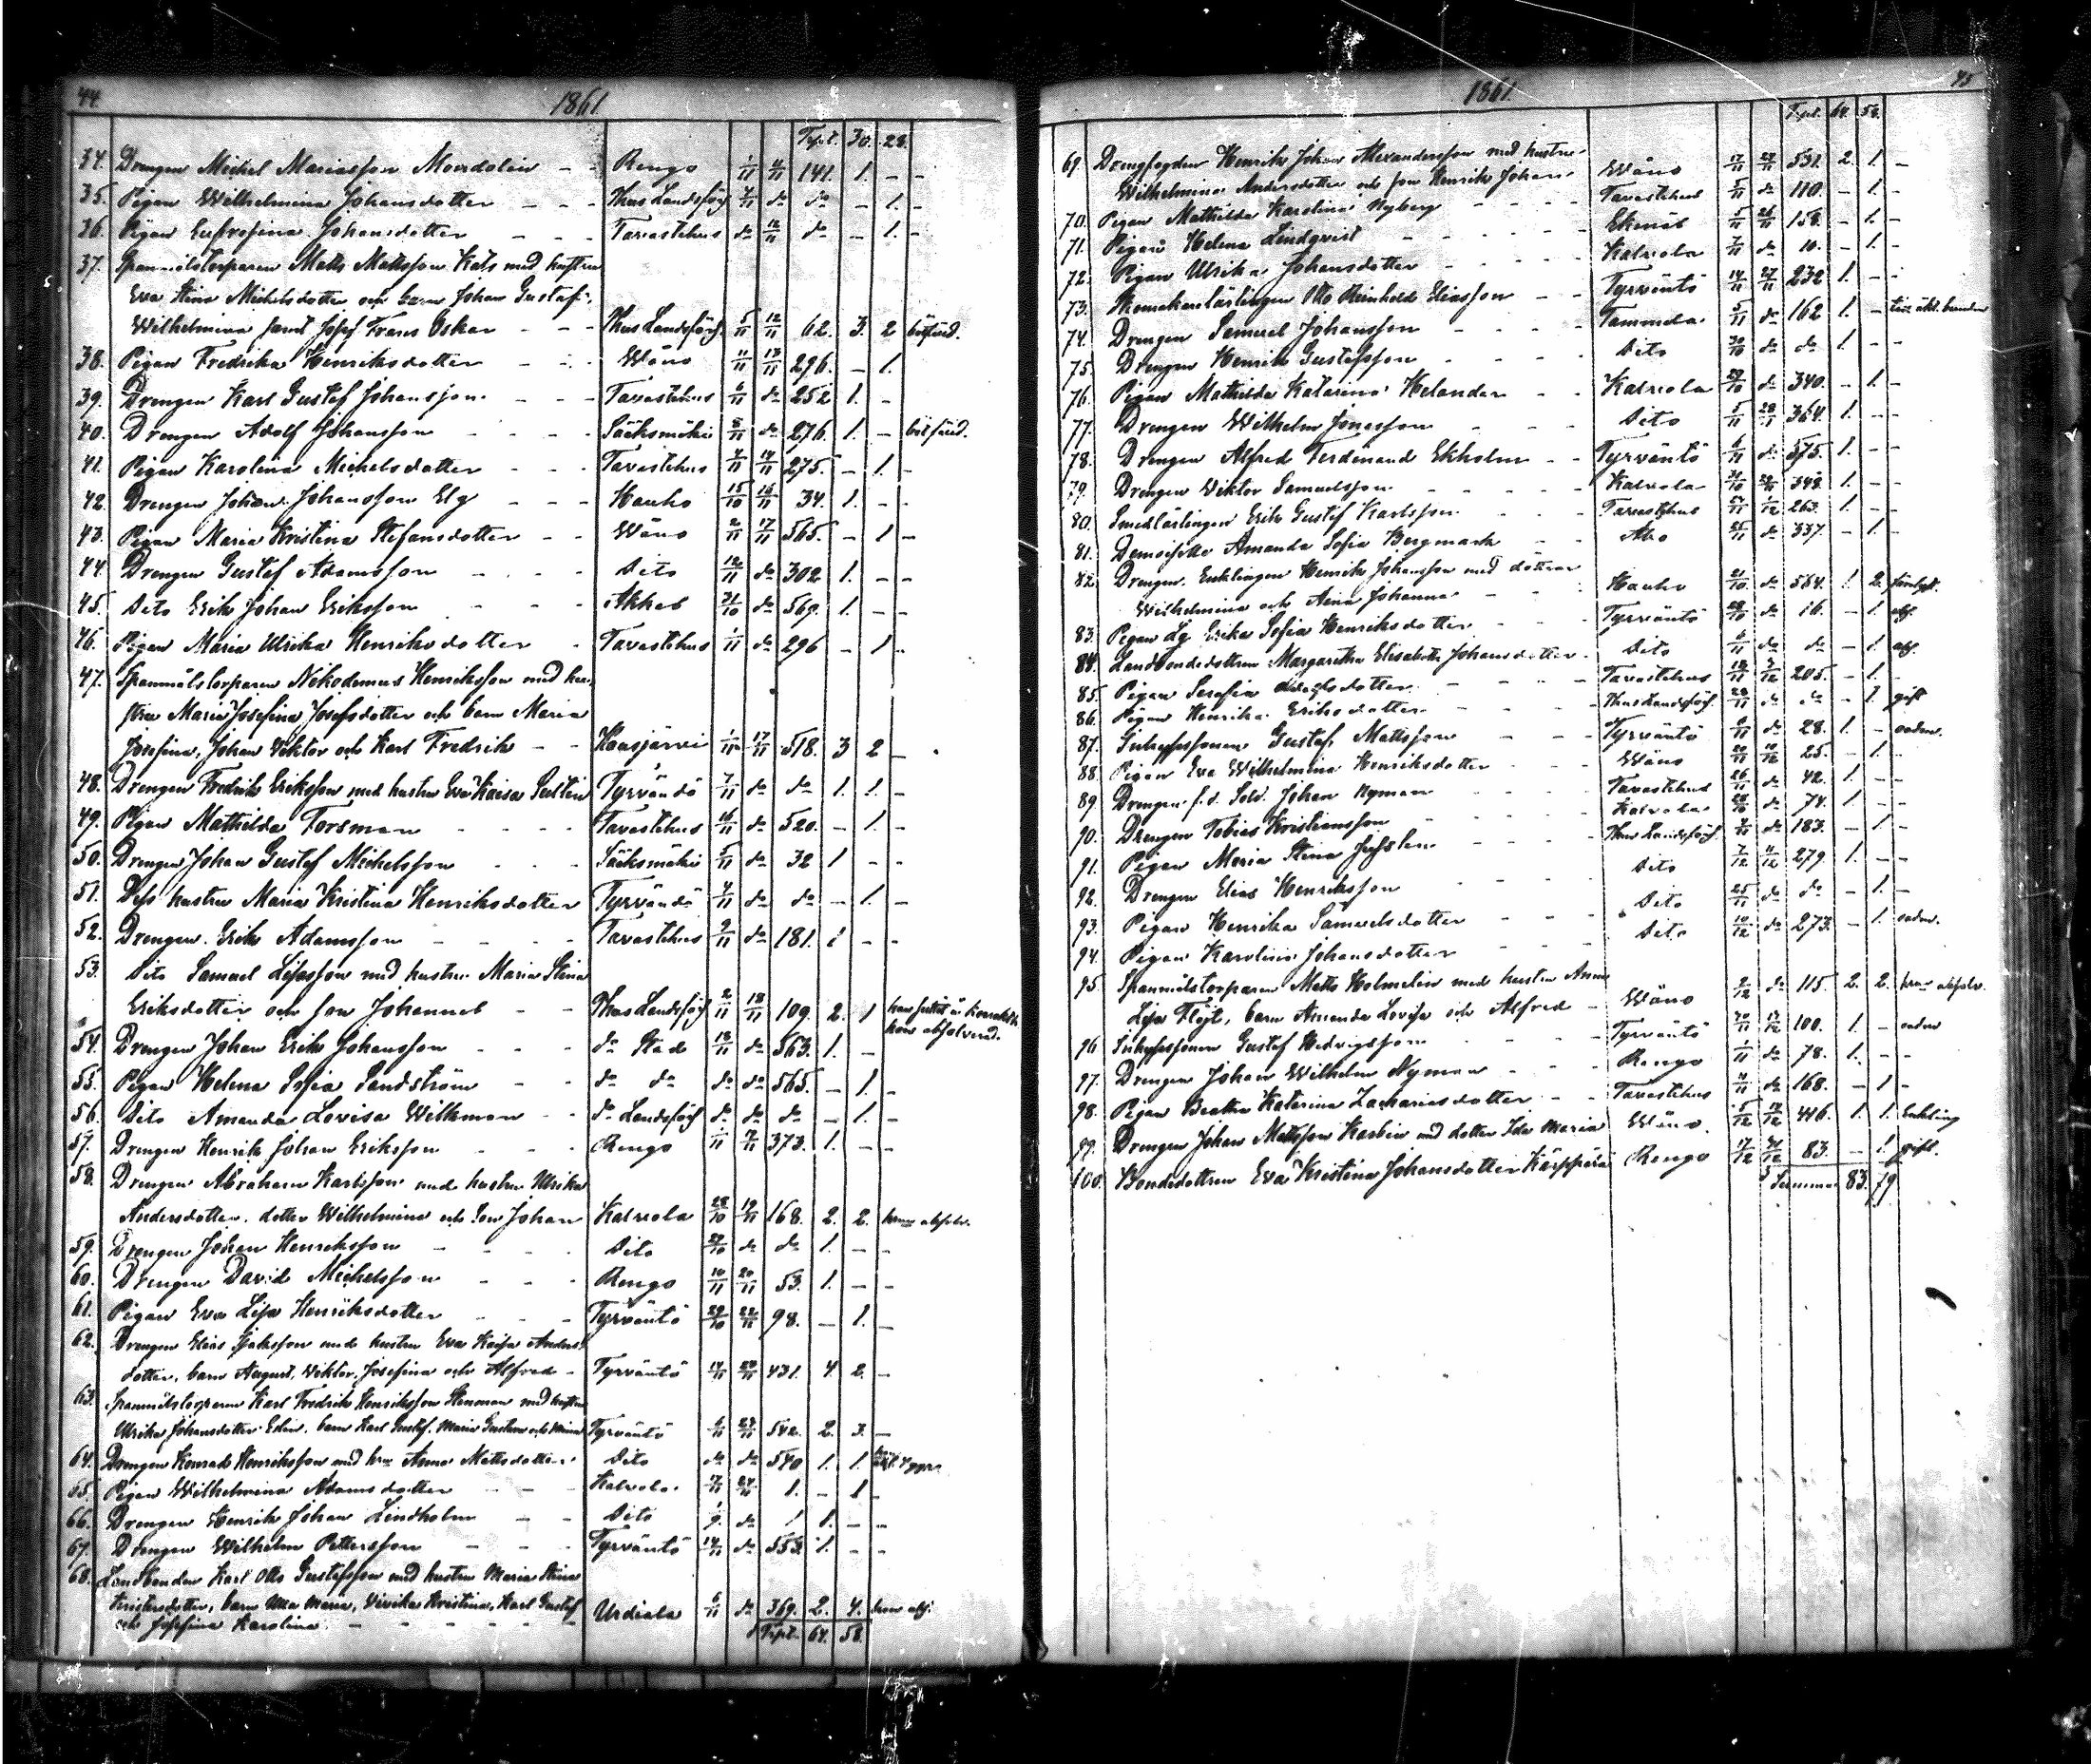 44.
1861
Trspt. 30. 28.
34. Drengen Michel Mariasson Mondolin - - Rengo 1/11 9/11 141. 1. - -
35. Pigan Wilhelmina Johansdotter - - - Thus Landsförs 7/11 do do - 1. -
36. Pigan Eufrosina Johansdotter - - - Tavastehus do 12/11 do - 1. -
37. Spanmålstorparen Matts Mattsson Kats med hustru
Eva Stina Michelsdotter och barn Johan Gustaf,
Wilhelmina samt Josef Frans Oskar - - - Thus Landsförs. 5/11 12/11 62. 3. 2
38. Pigan Fredrika Henriksdotter - - - Wåno 11/11 13/11 296. - 1.
39. Drengen Karl Gustaf Johansson - - - Tavastehus 6/11 do 252 1. -
40. Drengen Adolf Johansson - - - Sääksmäki 8/11 do 276. 1. -
41. Pigan Karolina Michelsdotter - - - Tavastehus 9/11 14/11 275. - 1. -
42. Drengen Johan Johansson Elg - - - Hauho 15/10 16/11 34. 1. - -
43. Pigan Maria Kristina Stefansdotter - - Wåno 2/11 17/11 565. - 1 -
44. Drengen Gustaf Adamsson - - - Dito 12/11 do 302 1. - -
45. Dito Erik Johan Eriksson - - - Akkas 31/10 do 569. 1. - -
46. Pigan Maria Ulrika Henriksdotter - Tavastehus 1/11 do 296 - 1 -
47. Spanmålstorparen Nikodemus Henriksson med hu-
stru Maria Josefina Josefsdotter och barn Maria
Josefina, Johan Viktor och Karl Fredrik - - Hausjärvi 1/11 17/11 518. 3 2 -
48. Drengen Fredrik Eriksson med hustru Eva Kaisa Tyrvändö 7/11 do do 1. 1. -
49. Pigan Mathilda Forsman - - - Tavastehus 16/11 do 520. - 1. -
50. Drengen Johan Gustaf Michelsson - - - Sääksmäki 5/11 do 32 1 - -
51. Dess hustru Maria Kristina Henriksdotter Tyrvändö 4/11 do do - 1. -
52. Drengen Erik Adamsson - - - Tavastehus 9/11 do 181. 1 - -
53. Dito Samuel Lisasson med hustru Maria Stina
Eriksdotter och son Johannes - - Thus Landsförs 2/11 18/11 109. 2. 1
54. Drengen Johan Erik Johansson - - - do Stad 18/11 do 563. 1. -
55. Pigan Helena Sofia Sandström - - do do do do 565. - 1. -
56. Dito Amanda Lovisa Wilkman - - do Landsförs do do do - 1. -
57. Drengen Henrik Johan Eriksson - - - Rengo 1/11 19/11 373. 1. - -
58. Drengen Abraham Karlsson med hustru Ulrika
Andersdotter, dotter Wilhelmina och son Johan Kalvola 28/10 19/11 168. 2. 2.
59. Drengen Johan Henriksson - - - Dito 29/10 do do 1. - -
60. Drengen David Michelsson - - - Rengo 10/11 20/11 53. 1. - -
61. Pigan Eva Lisa Henriksdotter - - Tyrväntö 29/10 22/11 98. - 1. -
62. Drengen Elias Isaksson med hustru Eva Kaisa Anders-
dotter, barn August, Viktor, Josefina och Alfred - Tyrväntö 14/11 23/11 431. 4 2. -
63. Spanmålstorparen Karl Fredrik Henriksson Stenman med hustru
Ulrika Johansdotter Edin, barn Karl Gustaf, Maria Gustava och Mina Tyrväntö 6/11 23/11 542. 2. 3. -
64. Drengen Konrad Henriksson med hu Anna Mattsdotter - Dito do do 540 1. 1.
65. Pigan Wilhelmina Adamsdotter - - Kalvola 17/11 24/11 1. - 1 -
66. Drengen Henrik Johan Lindholm - - Dito do 1 1. - -
67. Drengen Wilhelm Pettersson - - - Tyrväntö 14/11 do 553. 1. - -
68. Landbonden Karl Otto Gustafsson med hustru Maria Stina
Kristersdotter, barn Maria, Vivika Kristina, Karl Gustaf
och Josefina Karolina - - - Urdiala 6/11 do 369. 2. 4.
Trspt. 64. 58.
45
1861.
Trspt. 64. 58.
69. Drengfogden Henrik Johan Alexandersson med hustru
Wilhelmina Andersdotter och son Henrik Johan Wåno 17/11 24/11 531. 2. 1. -
70. Pigan Mathilda Karolina Nyberg - - - Tavastehus 5/11 do 110. - 1. -
71. Pigan Helena Lindqvist - - - Ekenäs 5/11 26/11 158. - 1. -
72. Pigan Ulrika Johansdotter - - - Kalvola 7/11 do 10. - 1. -
73. Skomakarlärlingen Otto Reinhold Eliasson - - Tyrväntö 14/11 27/11 232 1. -
74. Drengen Samuel Johansson - - - Tammela 5/11 do 162 1. -
75. Drengen Henrik Gustafsson - - - Dito 30/10 do do 1. - -
76. Pigan Mathilda Katarina Helander - - Kalvola 29/10 do 340. - 1. -
77. Drengen Wilhelm Jonasson - - - Dito 5/11 28/11 364. 1. - -
78. Drengen Alfred Ferdinand Ekholm - - Tyrväntö 6/11 do 575. 1. - -
79. Drengen Viktor Samuelsson - - - Kalvola 342. 1. - -
80. Smedlärlingen Erik Gustaf Karlsson - - - Tavastehus 1/12 263. 1. - -
81. Demoiselle Amanda Sofia Bergmark - - Åbo 25/11 do 337. - 1. -
82. Drengen Enklingen Henrik Johansson med döttrar
Wilhelmina och Aina Johanna - - - Hauho 21/10 do 564. 1 2.
83. Pigan Lg. Erika Sofia Henriksdotter - - - Tyrväntö 28/10 do 16. - 1
84. Landbondedottren Margaretha Elisabeth Johansdotter - Dito 6/11 do do - 1.
85. Pigan Serafia dotter - - - Tavastehus 18/11 3/12 205. - 1. -
86. Pigan Henrika Eriksdotter - - - Thus Landsförs. 28/11 do do - 1 gift
87. Inhysessonen Gustaf Mattsson - - - Tyrväntö do 28. 1. -
88. Pigan Eva Wilhelmina Henriksdotter - - - Wåno 25. - 1. -
89. Drengen f.d. Sold. Johan Nyman - - - Tavastehus 26/11 do 42. 1. - -
90. Drengen Tobias Kristiansson - - - Kalvola do 74. 1 - -
91. Pigan Maria Stina - - - Thus Landsförs. do 183. - 1. -
92. Drengen Elias Henriksson - - - Dito 279. 1. - -
93. Pigan Henrika Samuelsdotter - - - Dito 25/11 do do - 1. -
94. Pigan Karolina Johansdotter - - - Dito 10/12 do 273. - 1.
95. Spanmålstorparen Matts Holmelin med hustru Anna
Lisa Flöjt, barn Amanda Lovisa och Alfred - Wåno do 115. 2. 2.
96 Inhysessonen Gustaf Hedvigsson - - - Tyrväntö 100. 1. -
97. Drengen Johan Wilhelm Nyman - - - Rengo 1/11 do 78. 1. - -
98. Pigan Beatha Katarina Zachariasdotter - - Tavastehus 4/11 do 168. - 1 -
99. Drengen Johan Mattsson med dotter Ida Maria Wåno. 446. 1. 1. Enkling
100. Bondedottren Eva Kristina Johansdotter Käppärä Rengo 17/12 31/12 83. - 1. gift.
Summa 83. 79